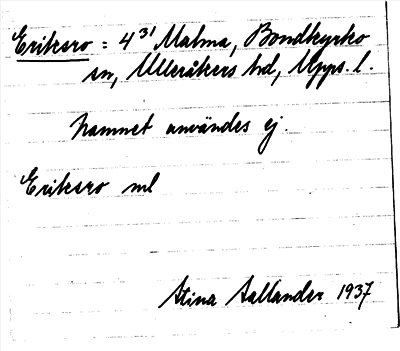 Eriksro : 4³¹ Malma, Bondkyrko
sn, Ulleråkers hd, Upps. l.
Namnet användes ej.
Eriksro ml
Stina Sallander 1937